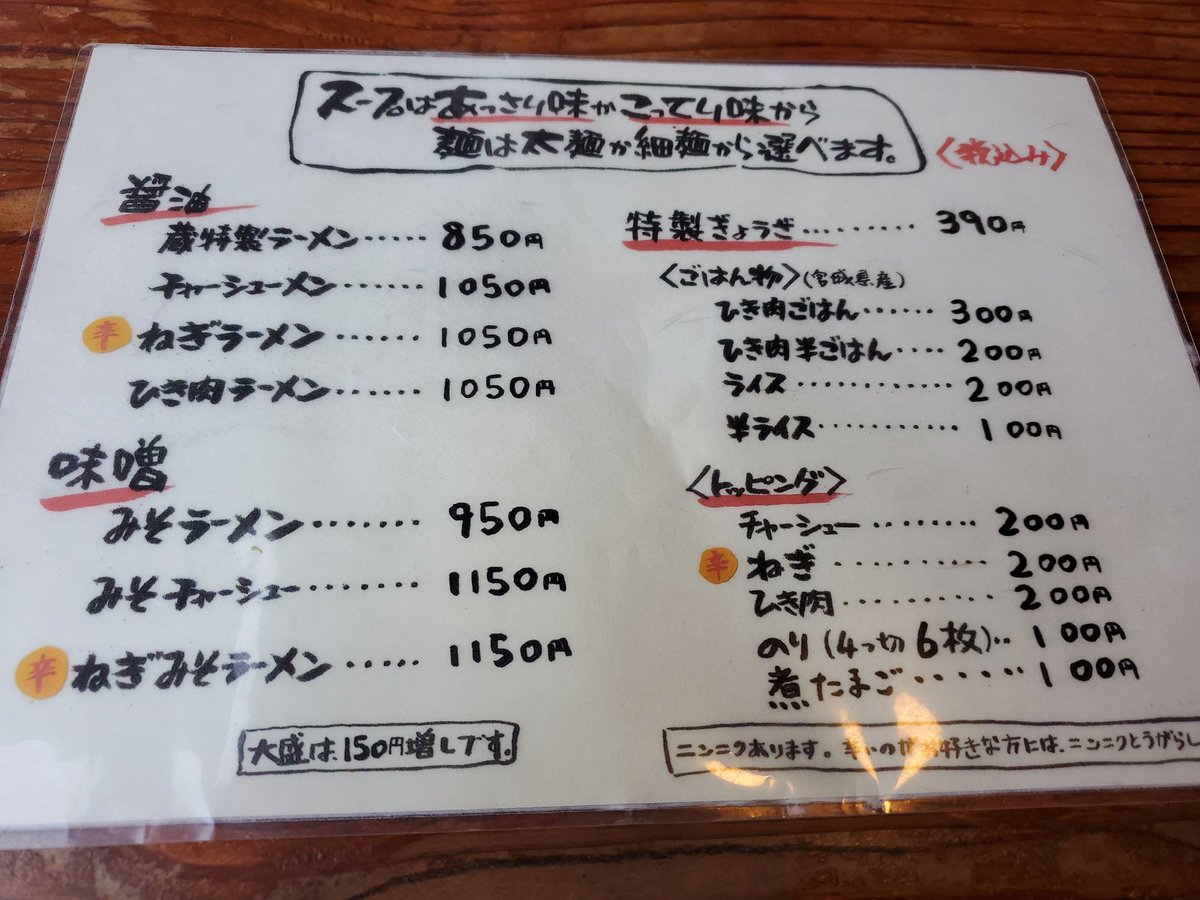 スープはあっさり味かこってり味から
麺は太麺か細麺から選べます。
〈税込み〉
醤油
蔵特製ラーメン……850円
チャーシューメン……1050円
辛 ねぎラーメン……1050円
ひき肉ラーメン……1050円
味噌
みそラーメン……950円
みそチャーシュー……1150円
辛 ねぎみそラーメン……1150円
大盛は、150円増しです。
特製ぎょうざ……390円
〈ごはん物〉(宮城県産)
ひき肉ごはん……300円
ひき肉半ごはん……200円
ライス……200円
半ライス……100円
〈トッピング〉
チャーシュー……200円
辛 ねぎ……200円
ひき肉……200円
のり(4つ切6枚)‥100円
煮たまご……100円
ニンニクあります。辛いのがお好きな方には、ニンニクとうがらし